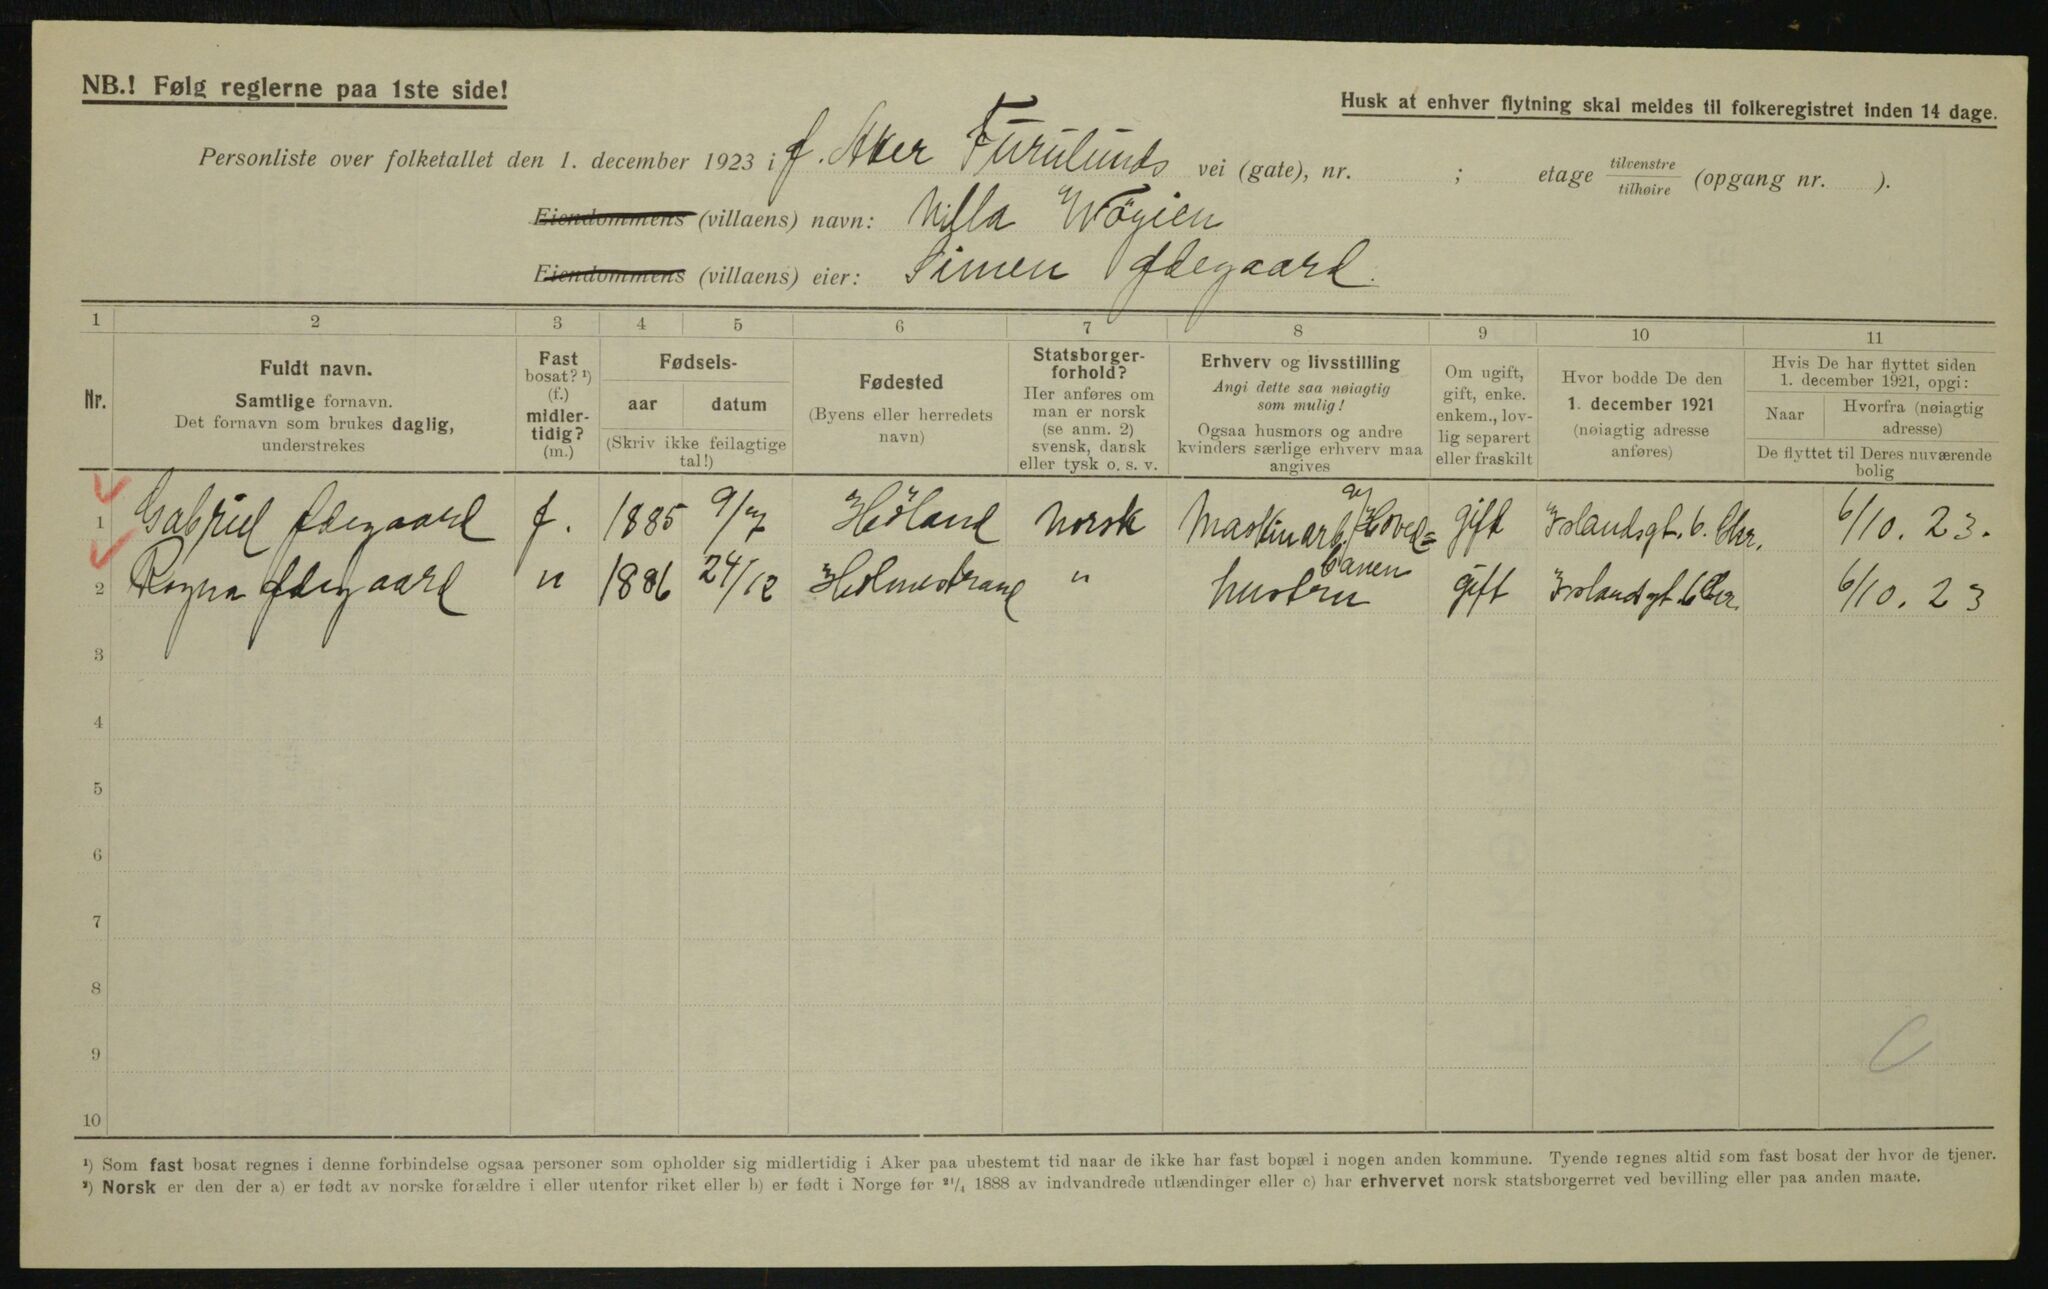 NB.! Følg reglerne paa 1ste side!
Husk at enhver flytning skal meldes til folkeregistret inden 14 dage.
Personliste over folketallet den 1. december 1923 i Ø. Aker Furulunds vei (gate), nr. ; etage tilvenstre/tilhøire (opgang nr. ).
Eiendommens (villaens) navn: Villa Wøyien
Eiendommens (villaens) eier: Simen Ødegaard.
1 2 3 4 5 6 7 8 9 10 11
Nr.
Fuldt navn.
Samtlige fornavn.
Det fornavn som brukes daglig,
understrekes
Fast
bosat? ¹)
(f.)
midler-
tidig?
(m.)
Fødsels-
aar datum
(Skriv ikke feilagtige
tal!)
Fødested
(Byens eller herredets
navn)
Statsborger-
forhold?
Her anføres om
man er norsk
(se anm. 2)
svensk, dansk
eller tysk o. s. v.
Erhverv og livsstilling
Angi dette saa nøiagtig
som mulig!
Ogsaa husmors og andre
kvinders særlige erhverv maa
angives
Om ugift,
gift, enke.
enkem., lov-
lig separert
eller fraskilt
Hvor bodde De den
1. december 1921
(nøiagtig adresse
anføres)
Hvis De har flyttet siden
1. december 1921, opgi:
Naar Hvorfra (nøiagtig
adresse)
De flyttet til Deres nuværende
bolig
1 Gabriel Ødegaard f. 1885 9/7 Høland Norsk Maskinarb. Hoved= gift Islandsgt. 6. Chr. 6/10. 23.
banen
2 Ragna Ødegaard " 1886 24/12 Holmestrand " hustru gift Islandsgt. 6 Chr. 6/10. 23
3
4
5
6
7
8
9
10
¹) Som fast bosat regnes i denne forbindelse ogsaa personer som opholder sig midlertidig i Aker paa ubestemt tid naar de ikke har fast bopæl i nogen anden kommune. Tyende regnes altid som fast bosat der hvor de tjener.
²) Norsk er den der a) er født av norske forældre i eller utenfor riket eller b) er født i Norge før ²¹/₄ 1888 av indvandrede utlændinger eller c) har erhvervet norsk statsborgerret ved bevilling eller paa anden maate.